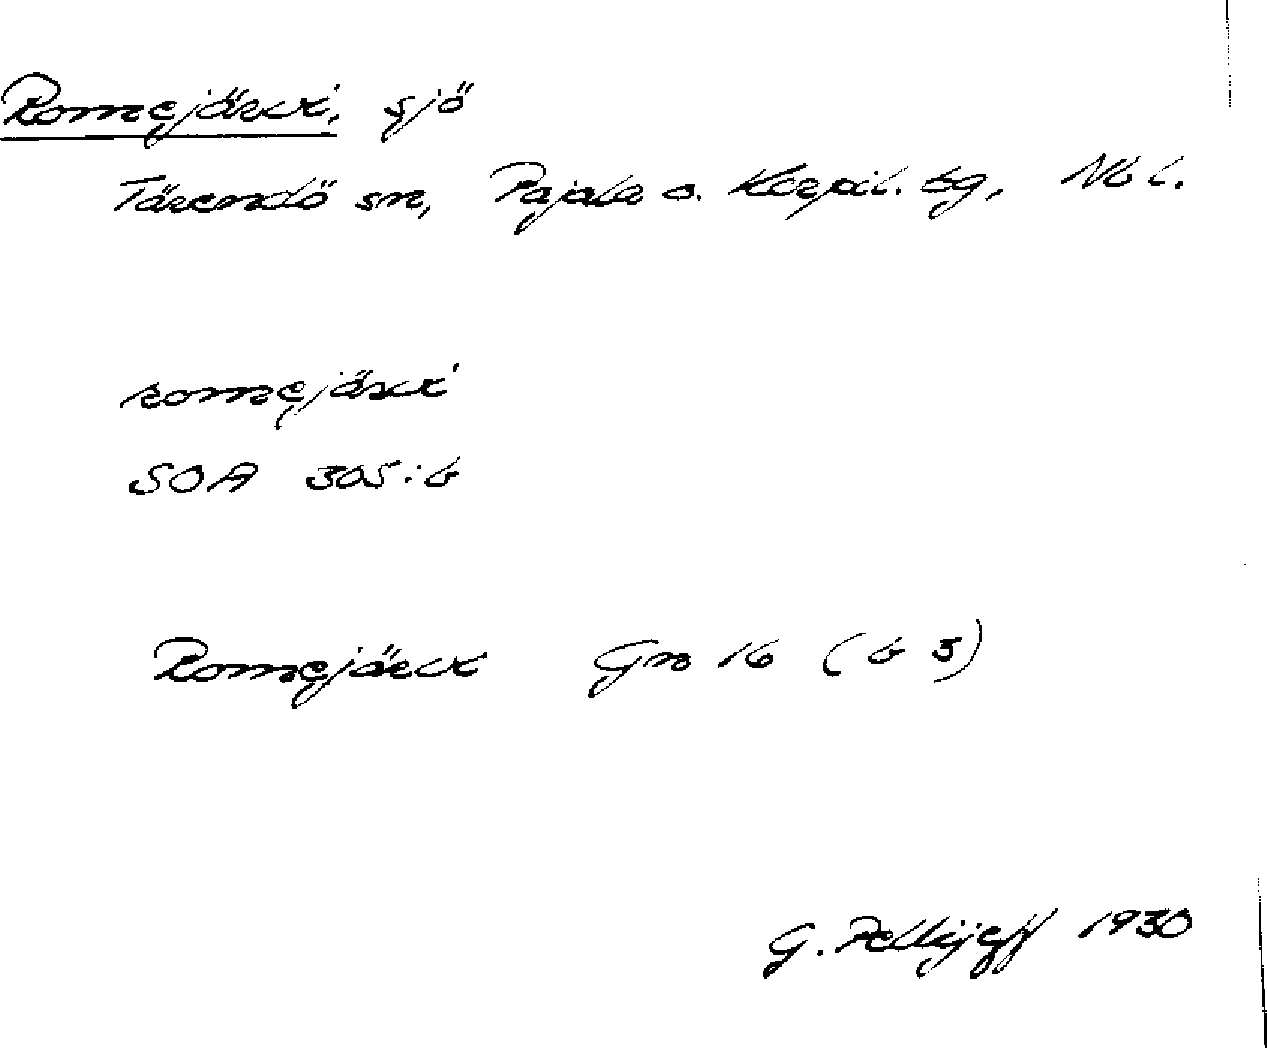 Romejärvi, sjö
Tärendö sn, Pajala o. Korpil. tg, Nb l.
romejärvi
SOA 305:6
Romejärvi Gn 16 (b 3)
G. Pellijeff 1930